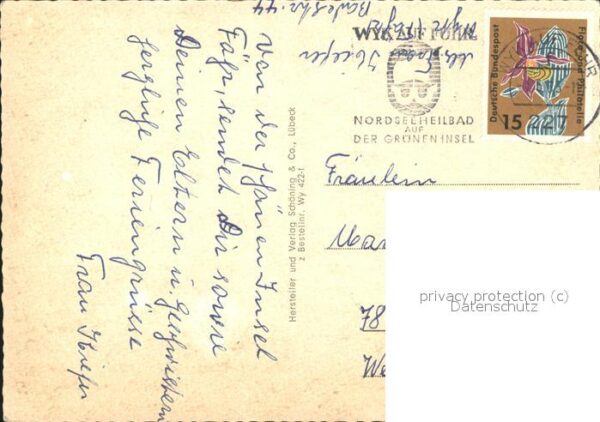 Von der schönen Insel
Föhr, sendet Dir sowie
Deinen Eltern u. Geschwistern
herzliche Feriengrüsse
Frau Kiefer
Hersteller und Verlag Schöning & Co., Lübeck
z Bestellnr. WY 422-1
Badestr. 44
Wyk / Föhr
Kiefer
WYK AUF FÖHR
NORDSEEHEILBAD
AUF
DER GRÜNEN INSEL
Deutsche Bundespost
Flora und Philatelie
15
Fräulein
78
We
privacy protection (c)
Datenschutz